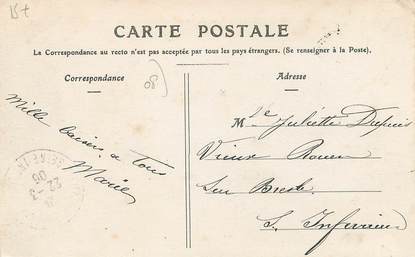 15+
CARTE POSTALE
La Correspondance au recto n'est pas acceptée par tous les pays étrangers. (Se renseigner à la Poste).
Correspondance
Adresse
90
Mille baisers a Tous
Marie
Mlle Juliette Dupuis
Vieux Rouen
Sur Bresle
S. Inferieure
22-3
06